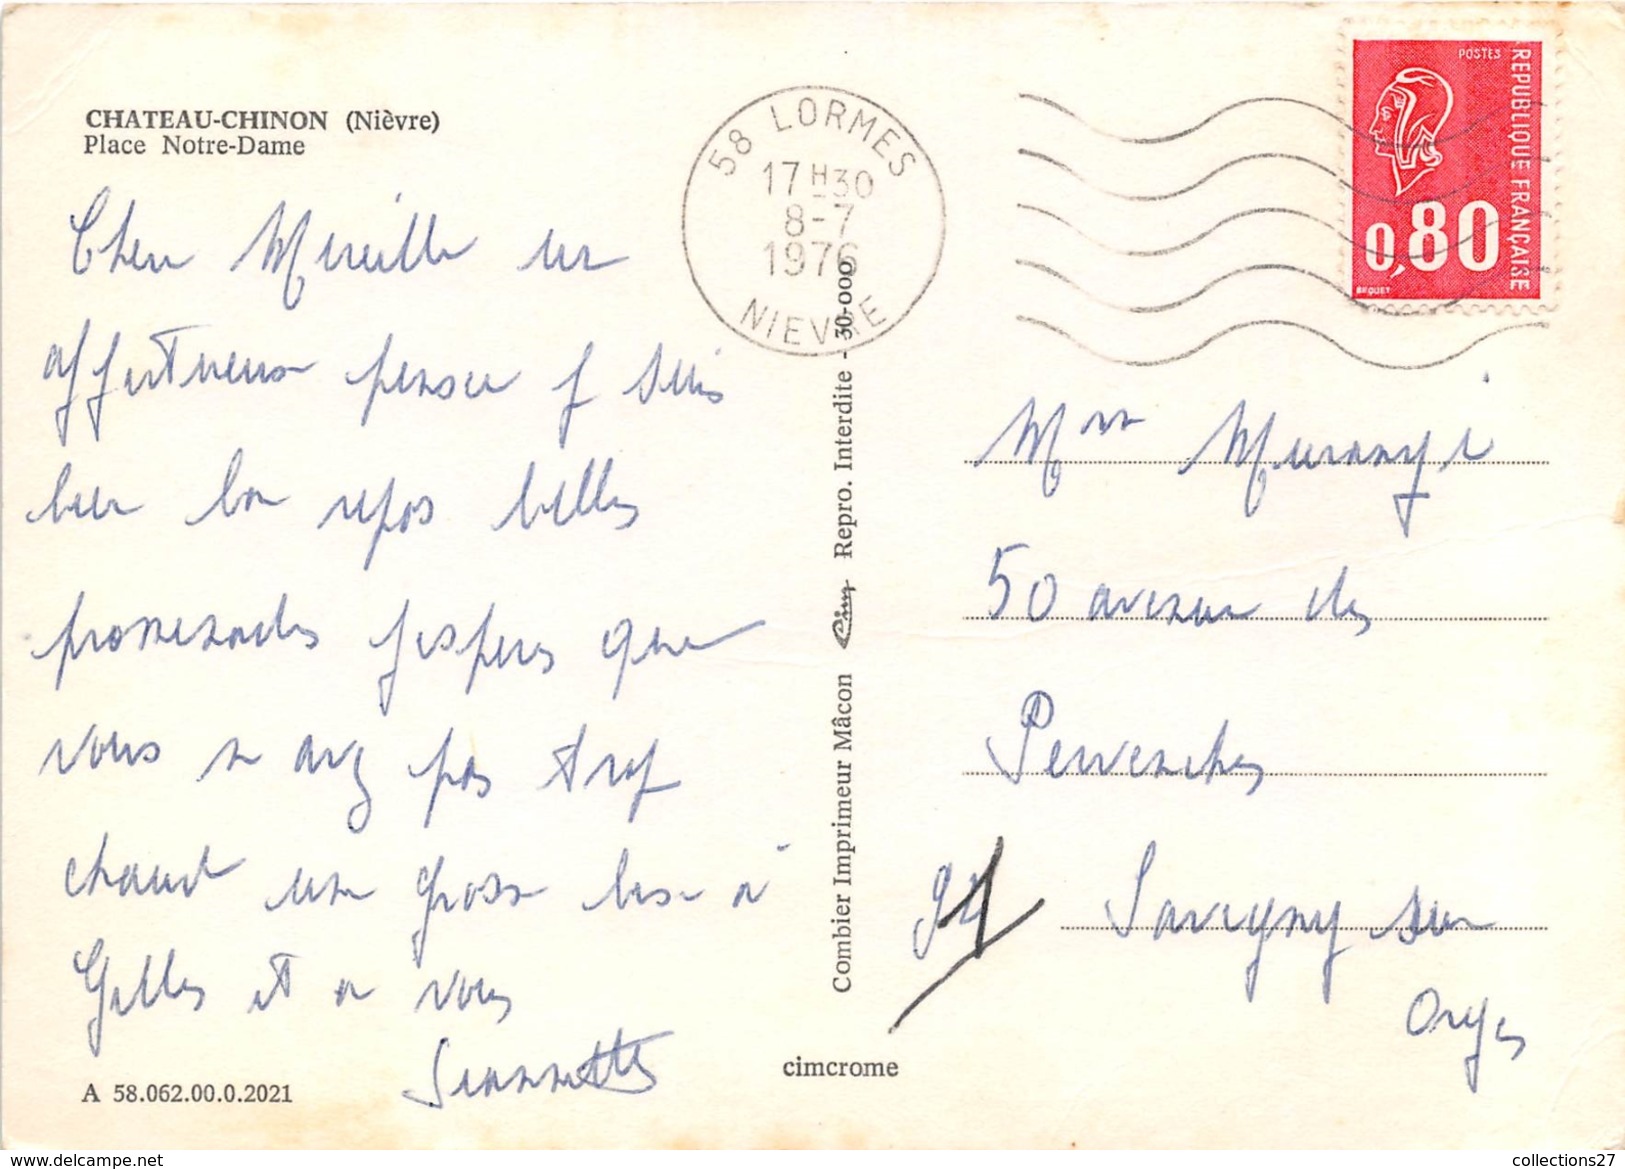 CHATEAU-CHINON (Nièvre)
Place Notre-Dame
Cher Mireille un
affectueux penser je suis
bien bon repos belles
promenades j'espère que
vous n avez pas trop
chaud une grosse bise à
Gilles et a vous
Jeannette
A 58.062.00.0.2021
58 LORMES
17 H 30
8-7
1976
NIEVRE
Combier Imprimeur Mâcon Cim Repro. Interdite - 30-000
cimcrome
POSTES
REPUBLIQUE FRANÇAISE
0,80
BEQUET
Mme Muranyi
50 avenue des
Pervenches
91 Savigny sur
Orge
collections27